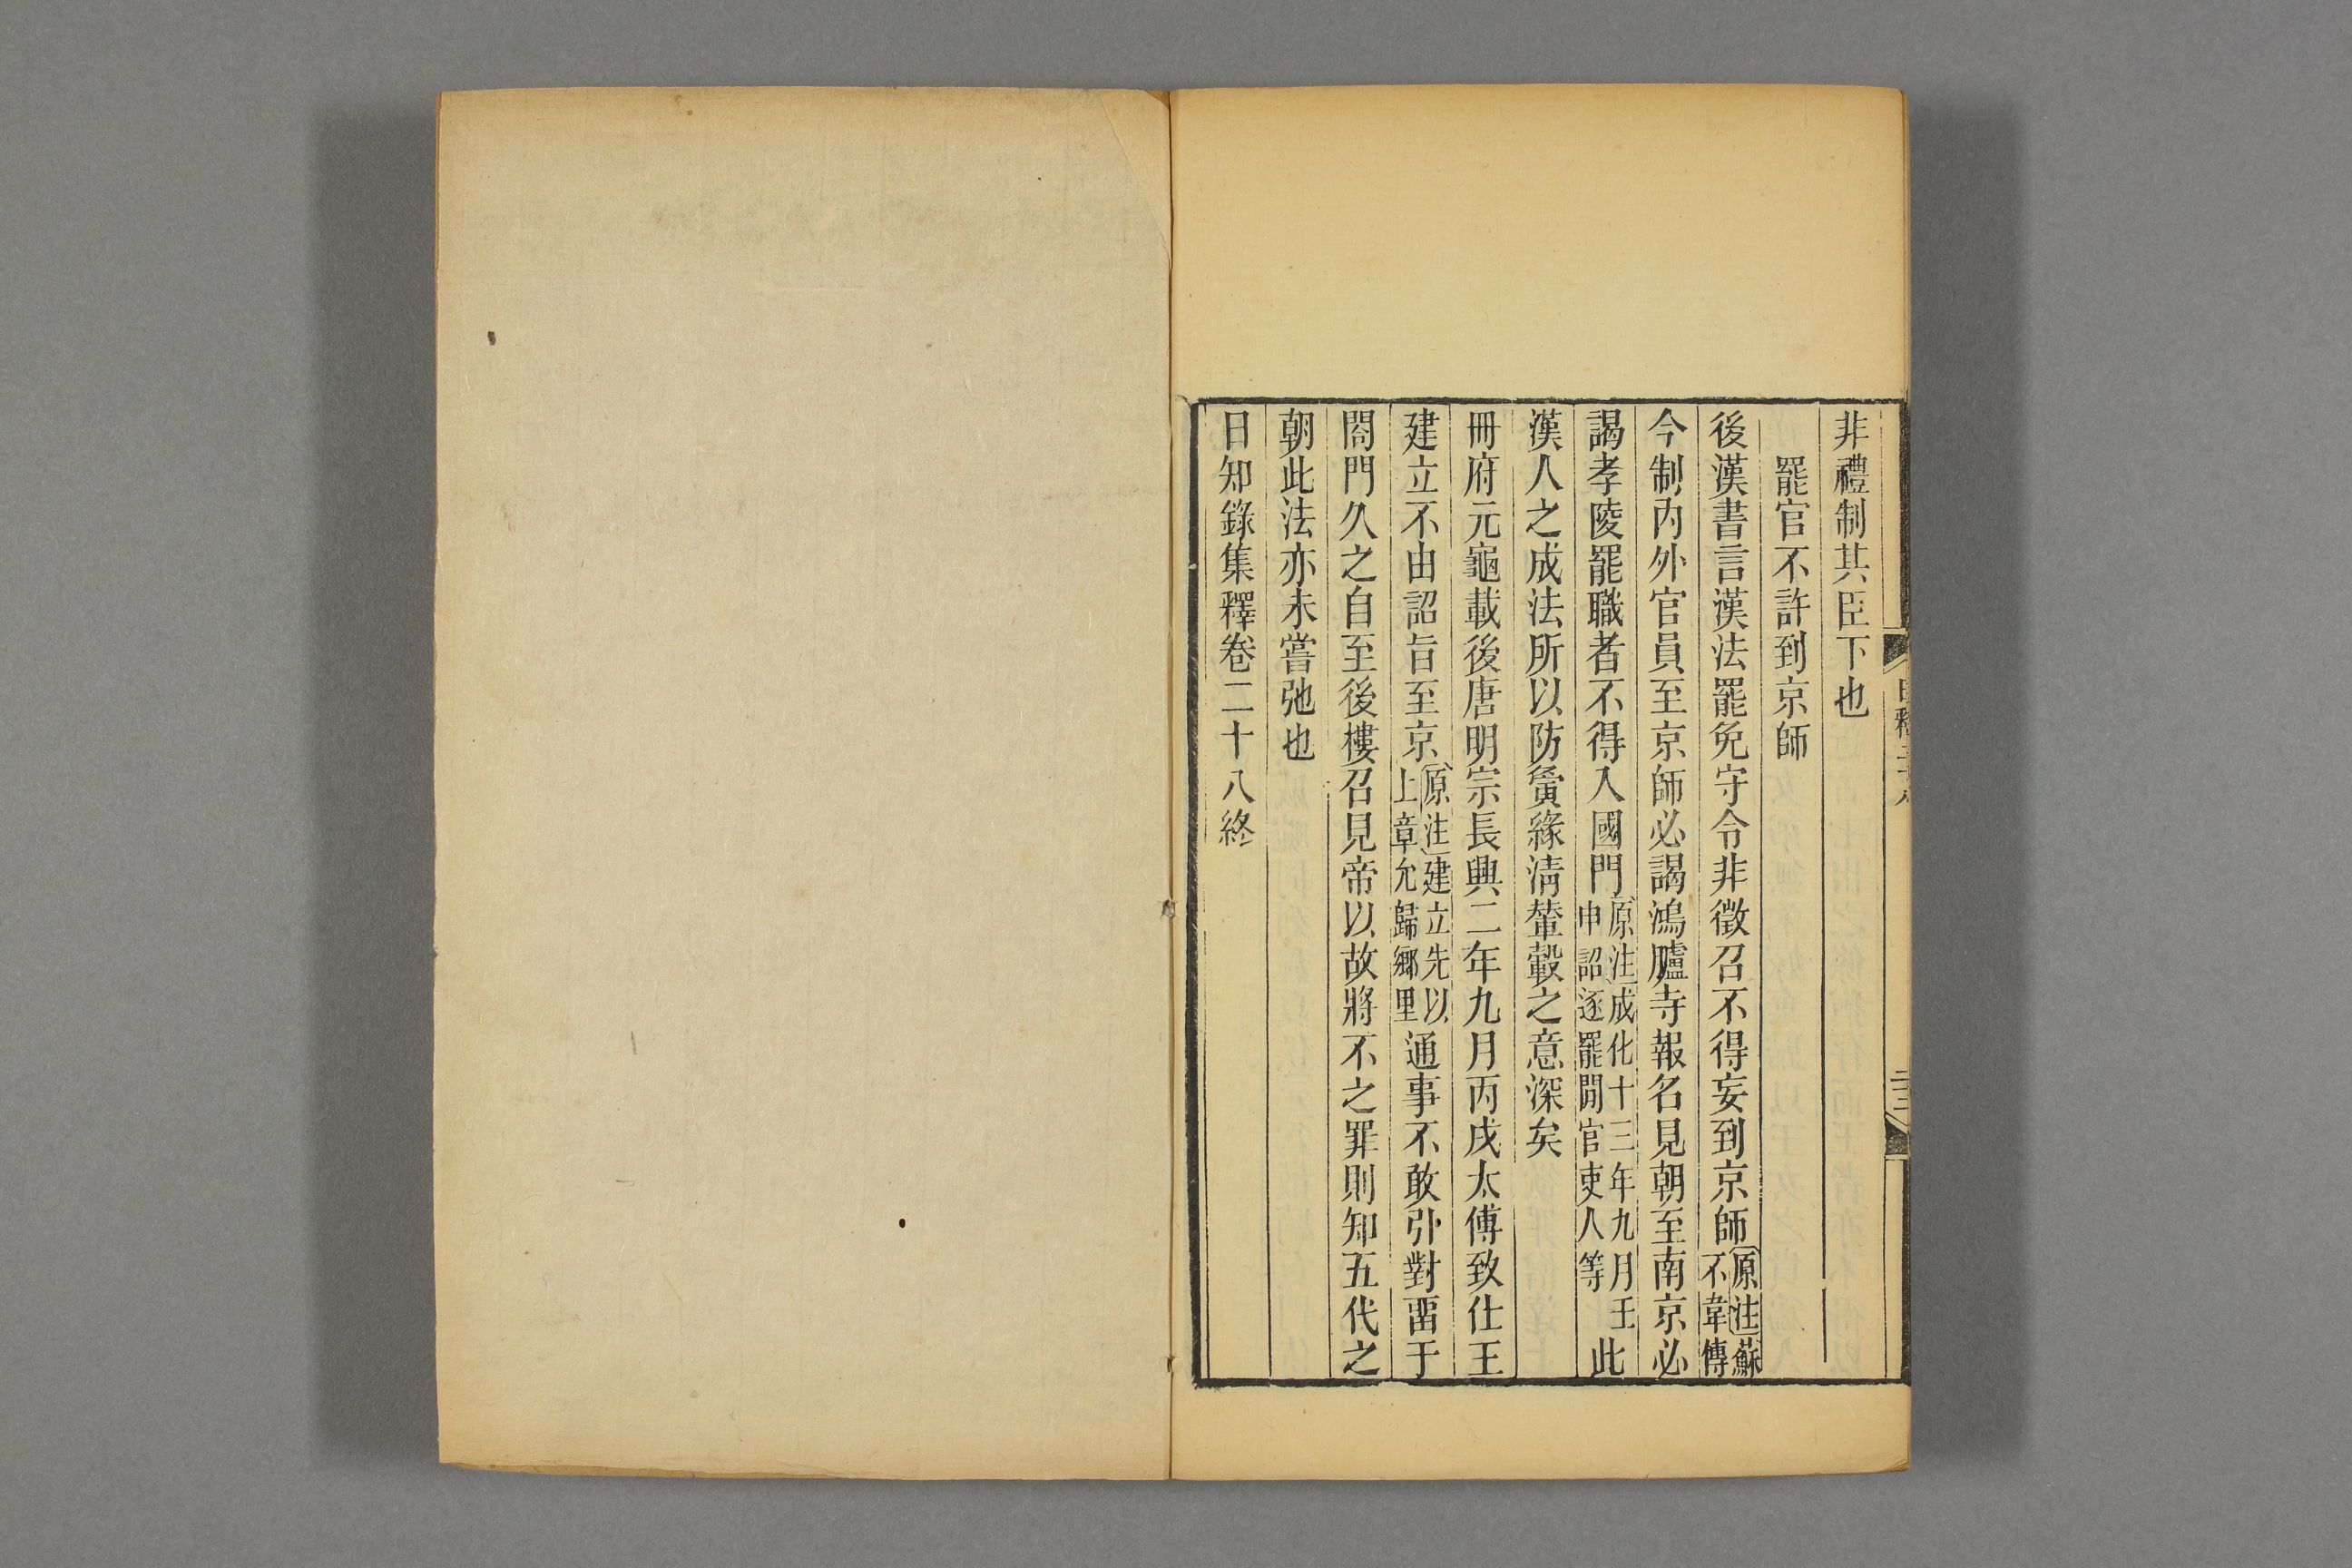 非禮制其臣下也
罷官不許到京師
後漢書言漢法罷免守令非徵召不得妄到京師原注蘇不韋傳
今制內外官員至京師必謁鴻臚寺報名見朝至南京必
謁孝陵罷職者不得入國門原注成化十三年九月壬申詔逐罷閒官吏人等此
漢人之成法所以防夤緣淸輦轂之意深矣
冊府元龜載後唐明宗長興二年九月丙戌太傅致仕王
建立不由詔旨至京原注建立先以上章允歸鄉里通事不敢引對畱于
閤門久之自至後樓召見帝以故將不之罪則知五代之
朝此法亦未嘗弛也
日知錄集釋卷二十八終